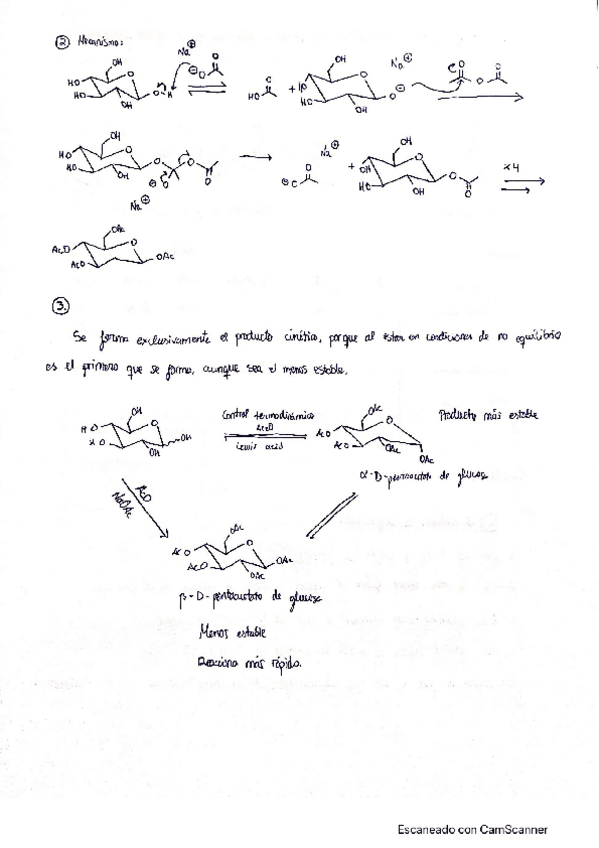 ② Mecanismo:
Na⊕
OH
HO
HO
OH
O
H
⊖O
O
HO
+
OH
HO
OH
O⊖
Na⊕
O
O
OH
HO
HO
OH
O
O
⊖O
O
Na⊕
Na⊕
O
+
OH
OH
HO
OH
O
O
O
x4
OAc
AcO
AcO
O
OAc
③.
Se forma exclusivamente el producto cinético, porque al estar en condiciones de no equilibrio
es el primero que se forma, aunque sea el menos estable.
OH
O
OH
OH
Control termodinámico
Ac2O
Lewis acid
OAc
AcO
AcO
O
OAc
OAc
Producto más estable
α-D-pentaacetato de glucosa
NaOAc
OAc
AcO
AcO
O
OAc
OAc
β-D-pentaacetato de glucosa
Menos estable
Reacciona más rápido.
Escaneado con CamScanner